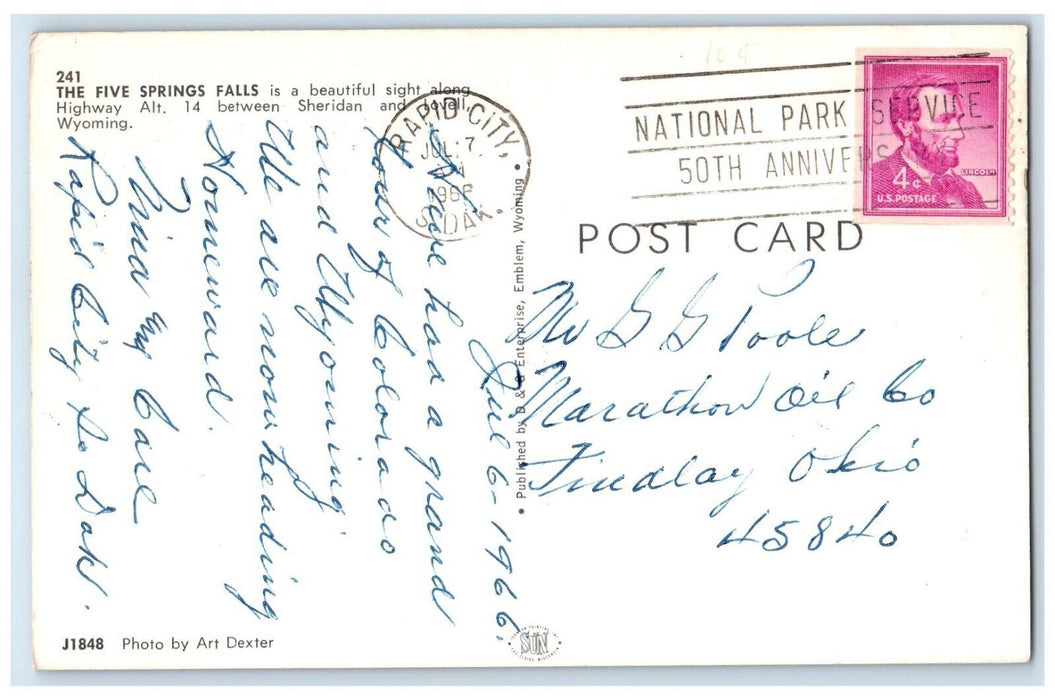 241
THE FIVE SPRINGS FALLS is a beautiful sight along
Highway Alt. 14 between Sheridan and Lovell,
Wyoming.
RAPID CITY,
JUL 7
1966
S. DAK.
NATIONAL PARK SERVICE
50TH ANNIVERSARY
LINCOLN
4¢
U.S. POSTAGE
POST CARD
Jul 6-1966.
Have had a grand
tour of Colorado
and Wyoming.
We are now heading
Homeward.
Nina Carl
Rapid City So Dak.
• Published by D & S Enterprise, Emblem, Wyoming •
Mr G G Poole
Marathon Oil Co
Findlay Ohio
45840
J1848 Photo by Art Dexter
SUN